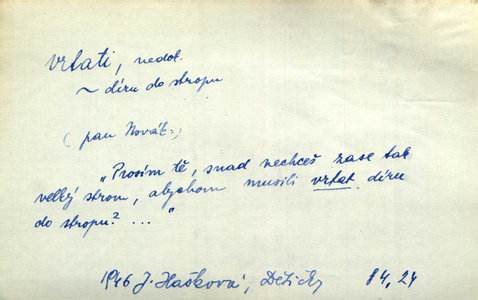 vrtati, nedok.
~ díru do stropu
(pan Novák:)
„Prosím tě, snad nechceš zase tak
velký strom, abychom musili vrtat díru
do stropu? ..."
1946 J. Hašková, Dětičky 84, 24